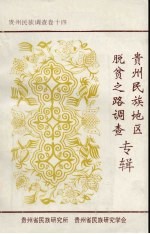 贵州民族调查卷十四
贵州民族地区
脱贫之路调查
专辑
贵州省民族研究所 贵州民族研究学会